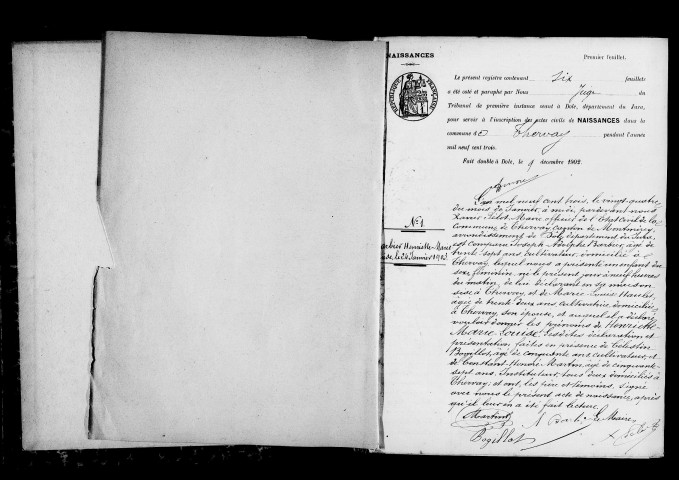 NAISSANCES
Premier feuillet.
RÉPUBLIQUE FRANÇAISE
Le présent registre contenant six feuillets
a été coté et paraphé par Nous Juge du
Tribunal de première instance séant à Dole, département du Jura,
pour servir à l'inscription des actes civils de NAISSANCES dans la
commune de Thervay pendant l'année
mil neuf cent trois.
Fait double à Dole, le 9 décembre 1902.
N° 1
Barbier Henriette Marie
Louise, le 24 Janvier 1903.
L'an mil neuf cent trois, le vingt-quatre
du mois de Janvier, à midi, pardevant nous
Xavier Maire officier de l'Etat civil de la
Commune de Thervay canton de Montmirey
arrondissement de Dôle, département du Jura,
est comparu Joseph Adolphe Barbier, âgé de
trente sept ans, cultivateur, domicilié à
Thervay, lequel nous a présenté un enfant du
sexe féminin, né le présent jour à neuf heures
du matin, de lui déclarant en sa maison
sise à Thervay, et de Marie
âgée de trente deux ans, cultivatrice, domiciliée
à Thervay, son épouse, et auquel il a déclaré
vouloir donner les prénoms de Henriette
Marie Louise. Lesdites déclaration et
présentation faites en présence de Célestin
Bogillot, âgé de cinquante ans cultivateur et
de Constant Honoré Martin, âgé de cinquante
sept ans, Instituteur, tous deux domiciliés à
Thervay, et ont, les père et témoins, signé
avec nous le présent acte de naissance, après
qu'il leur en a été fait lecture.
Martin A Barbier Le Maire
Bogillot